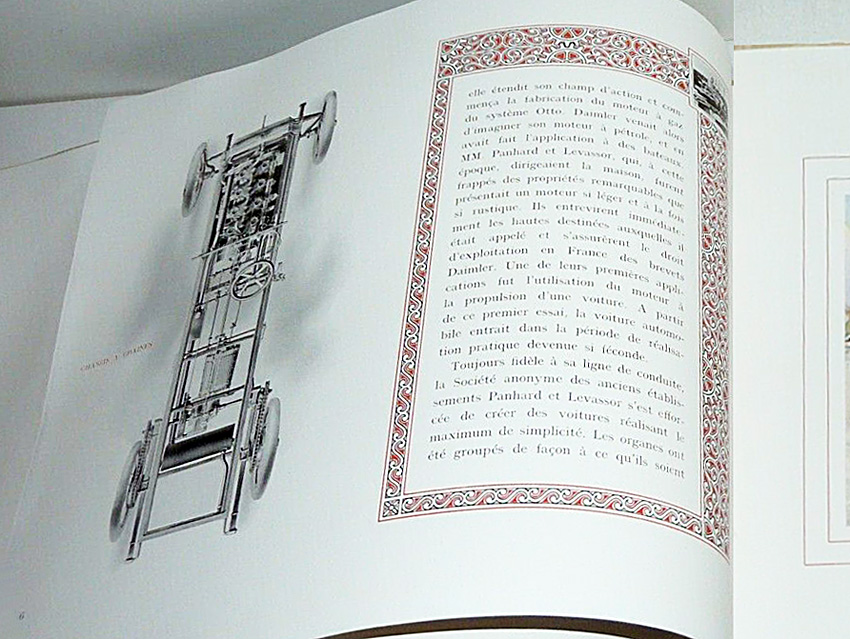 CHASSIS A CHAINES
elle étendit son champ d'action et com-
mença la fabrication du moteur à gaz
du système Otto. Daimler venait alors
d'imaginer son moteur à pétrole, et en
avait fait l'application à des bateaux.
MM. Panhard et Levassor, qui, à cette
époque, dirigeaient la maison, furent
frappés des propriétés remarquables que
présentait un moteur si léger et à la fois
si rustique. Ils entrevirent immédiate-
ment les hautes destinées auxquelles il
était appelé et s'assurèrent le droit
d'exploitation en France des brevets
Daimler. Une de leurs premières appli-
cations fut l'utilisation du moteur à
la propulsion d'une voiture. A partir
de ce premier essai, la voiture automo-
bile entrait dans la période de réalisa-
tion pratique devenue si féconde.
Toujours fidèle à sa ligne de conduite,
la Société anonyme des anciens établis-
sements Panhard et Levassor s'est effor-
cée de créer des voitures réalisant le
maximum de simplicité. Les organes ont
été groupés de façon à ce qu'ils soient
6